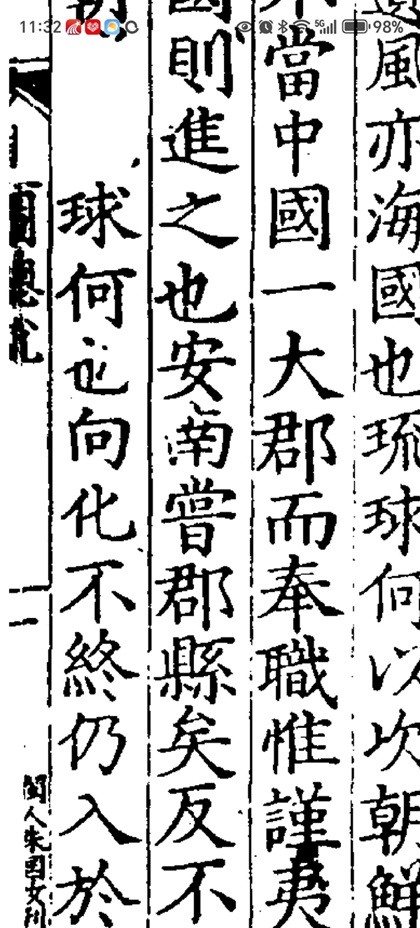 11:32 5G 98%
風亦海國也琉球何以次朝鮮
不當中國一大郡而奉職惟謹夷
國則進之也安南嘗郡縣矣反不
球何也向化不終仍入於
二
閩人朱國